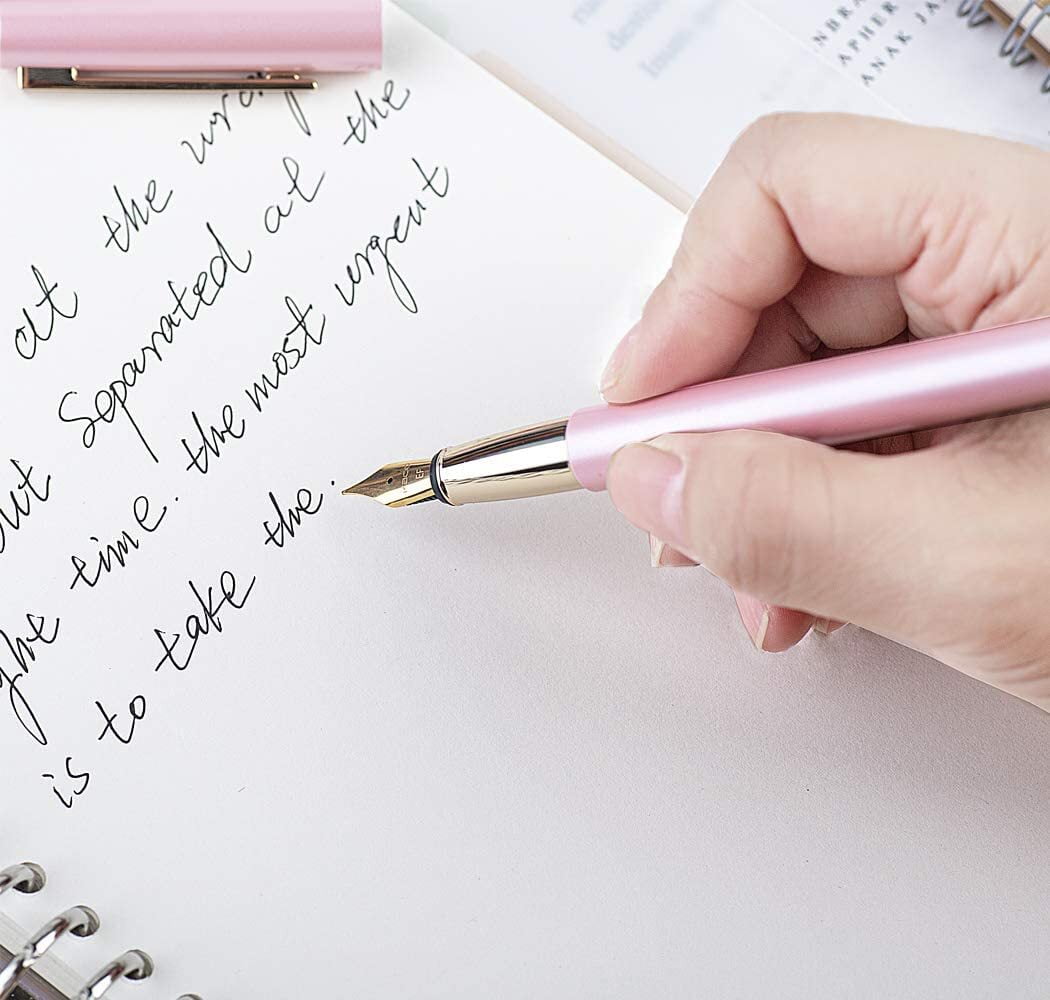 at the
Separated at the
time. the most urgent
is to take the.
APHER
ANAK JA
EF